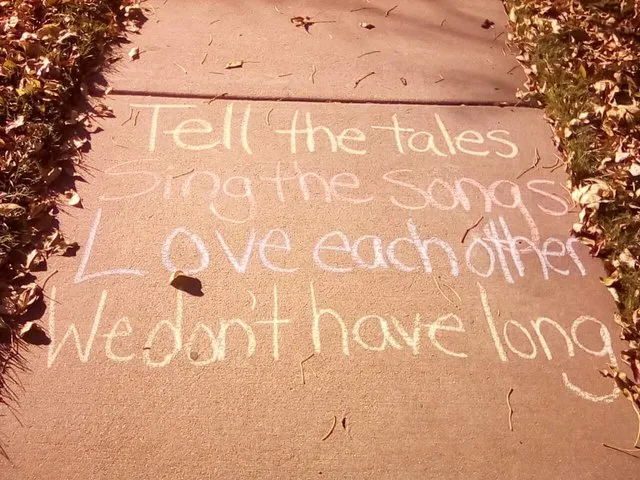 Tell the tales
Sing the songs
Love each other
We don't have long